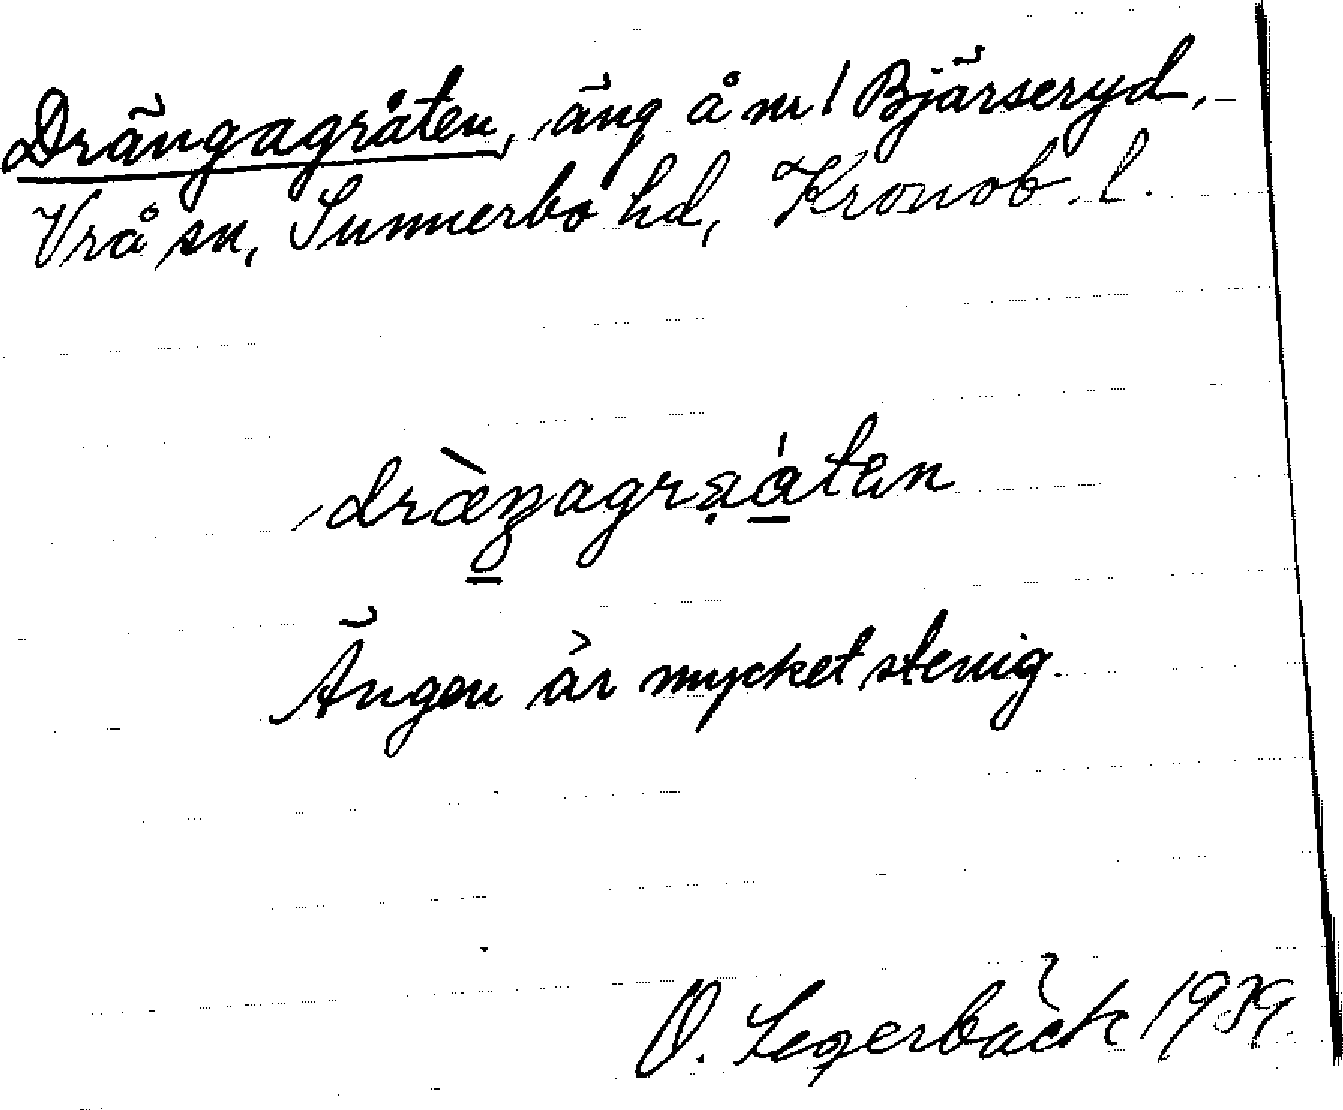 Drängagråten, äng å nr 1 Bjärseryd,
Vrå sn, Sunnerbo hd, Kronob. l.
Ängen är mycket stenig.
O. Segerbäck 1939.